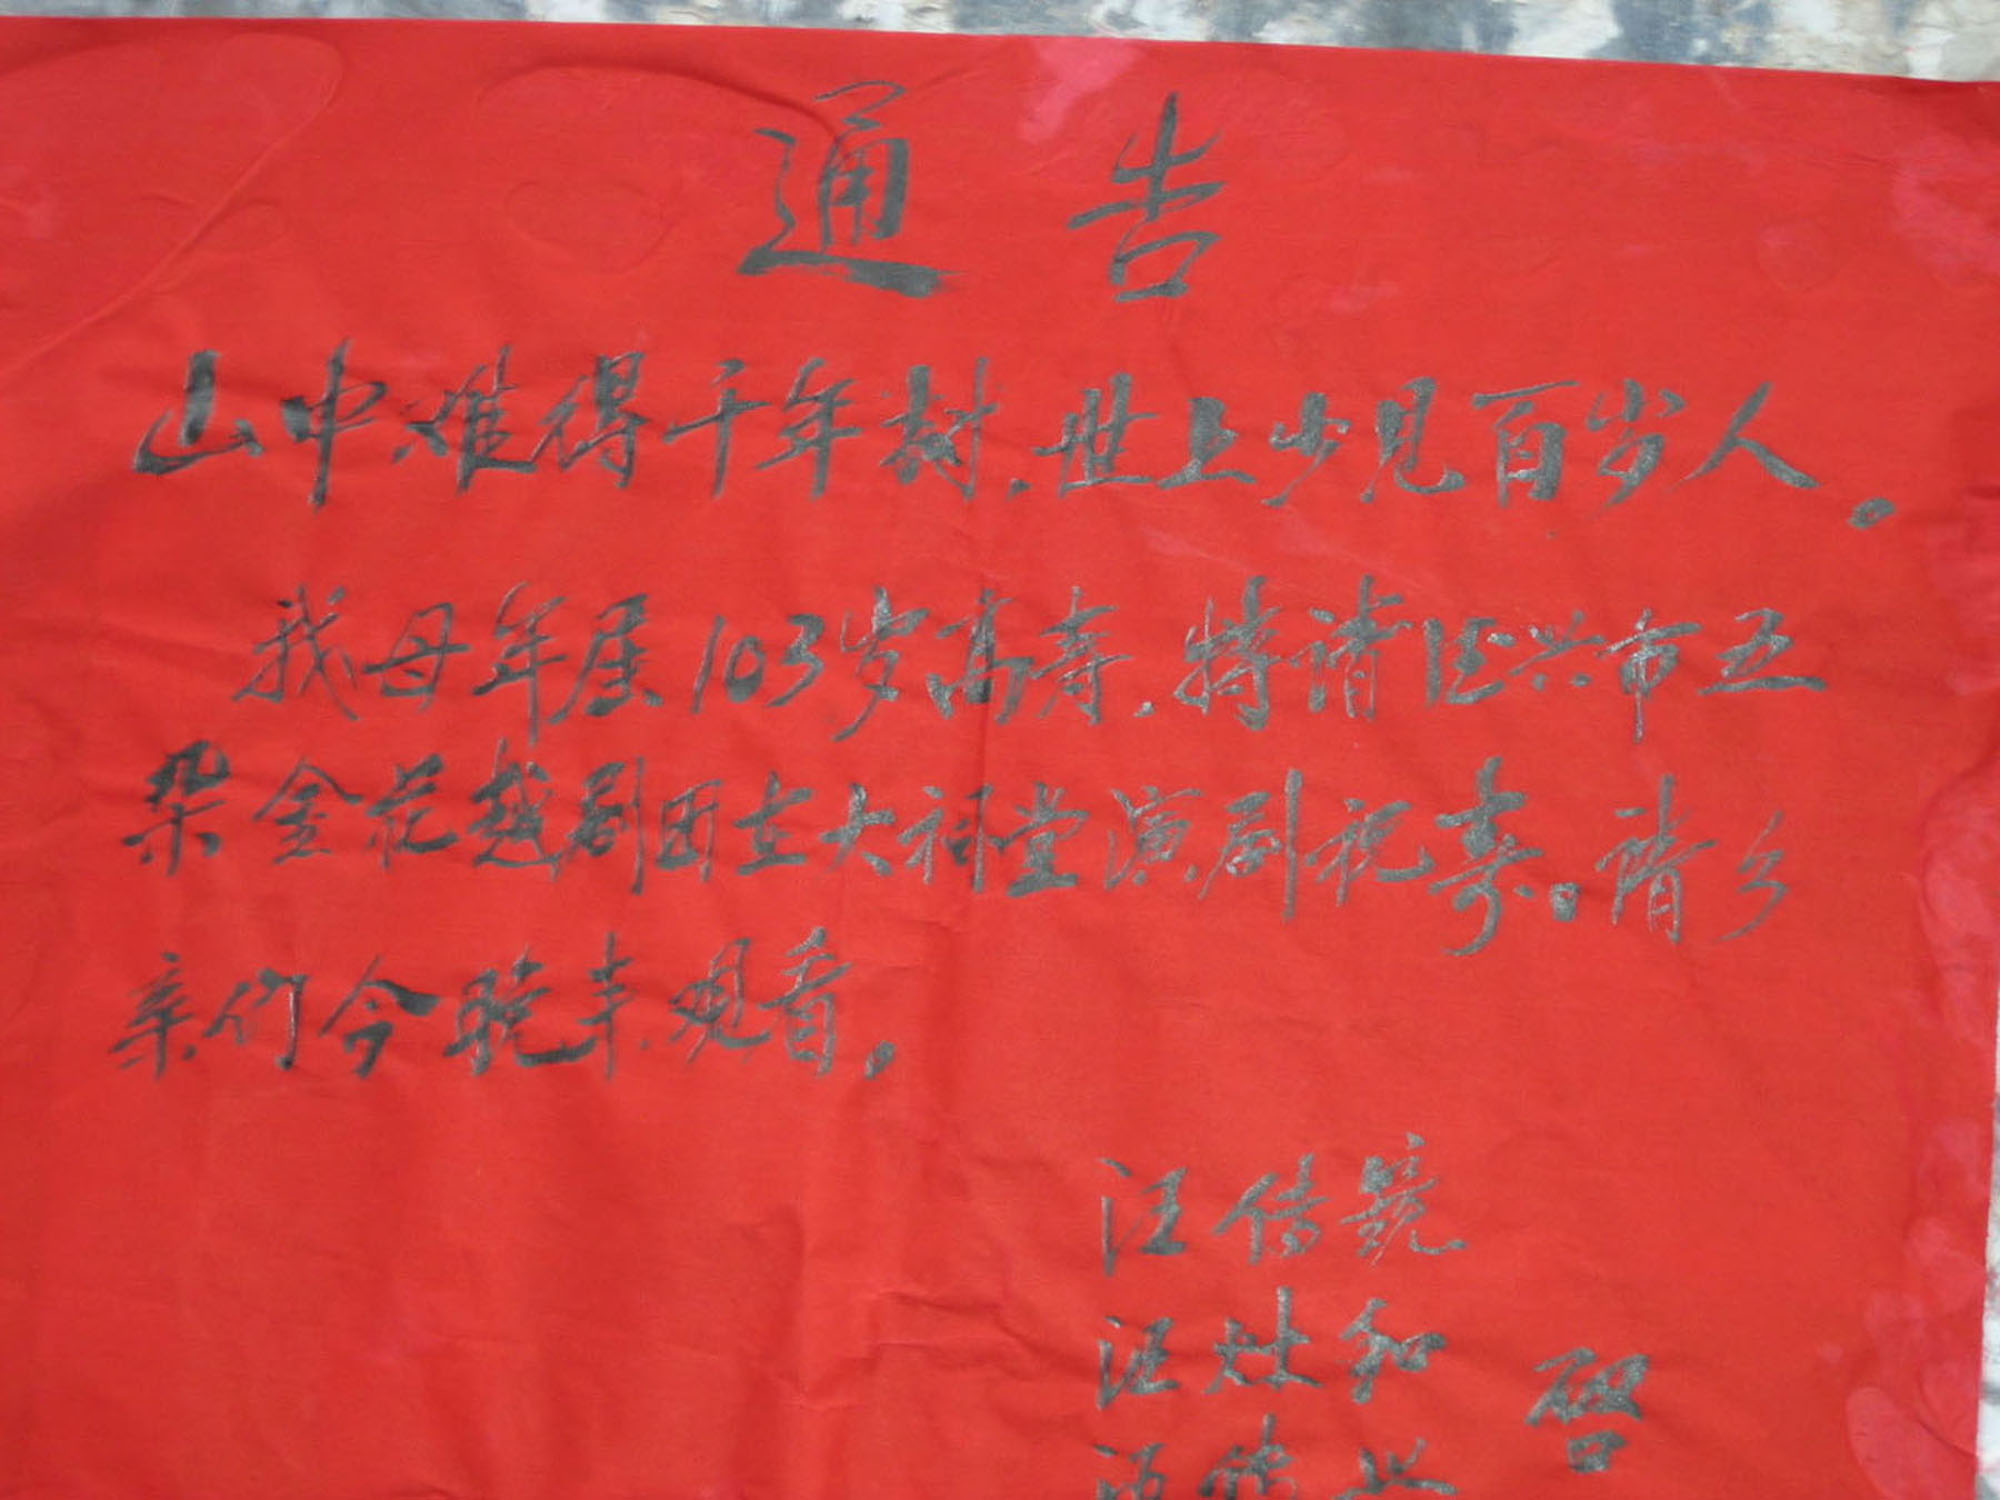 通告
山中难得千年树，世上少见百岁人。
我母年届103岁高寿，特请德兴市五
朵金花越剧团在大祠堂演剧祝寿。请乡
亲们今晚来观看。
汪传镜
汪灶和
启
汪传兴